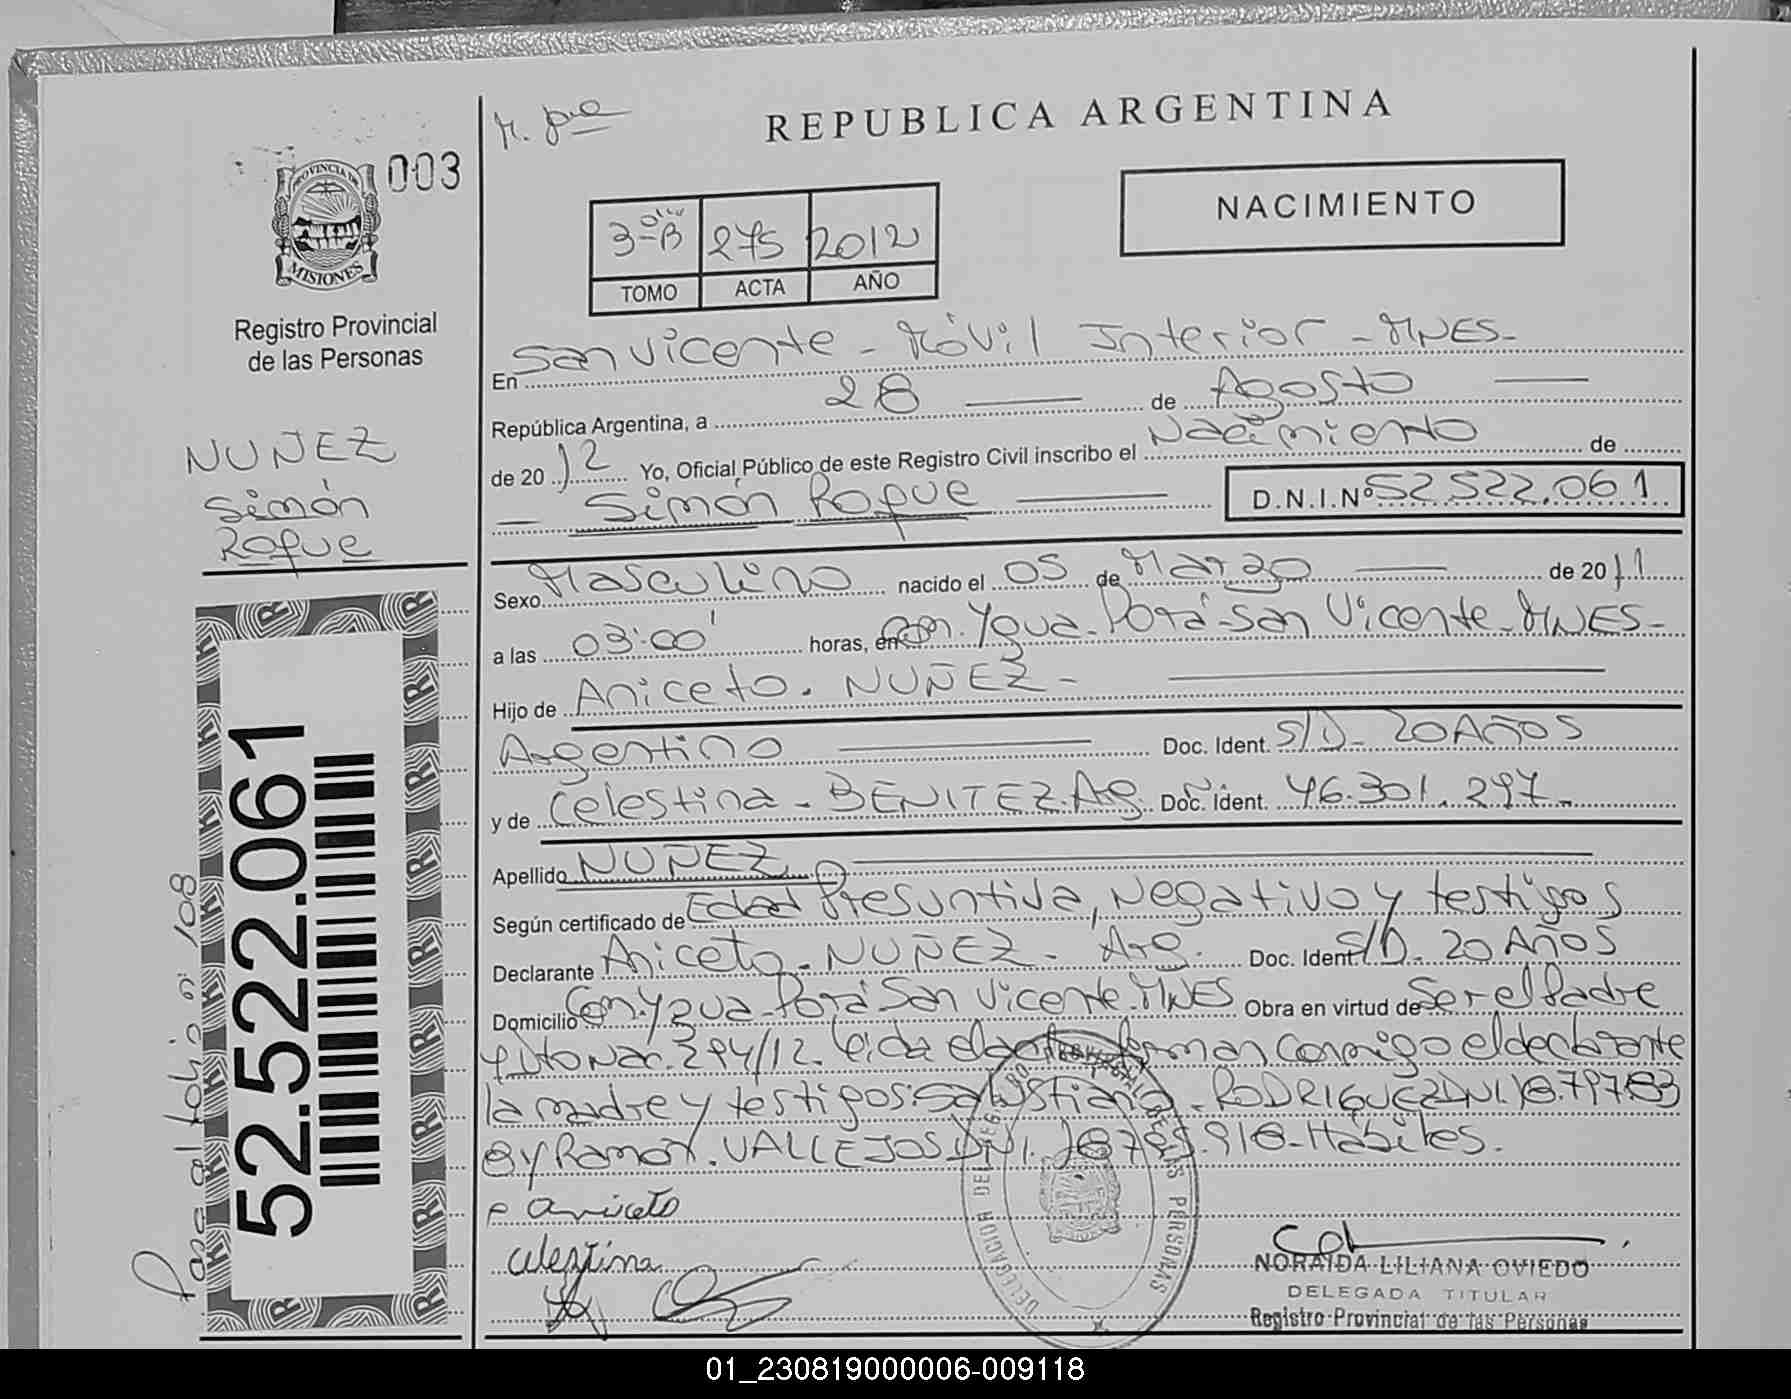 REPUBLICA ARGENTINA
003
PROVINCIA DE
MISIONES
Registro Provincial
de las Personas
NACIMIENTO
3º B 275 2012
TOMO ACTA AÑO
En San Vicente - Móvil Interior - MNES-
República Argentina, a 28 de Agosto
de 2012 Yo, Oficial Público de este Registro Civil inscribo el Nacimiento de
Simón Roque D.N.I.Nº 52.522.061
NUÑEZ
Simón
Roque
Sexo Masculino nacido el 05 de Marzo de 2011
a las 03:00' horas, en Com. Ygua-Porá-San Vicente-MNES-
Hijo de Aniceto. NUÑEZ-
Argentino Doc. Ident. S/D- 20 Años
y de Celestina - BENITEZ. Arg. Doc. Ident. 46.301.297.-
Apellido NUÑEZ
Según certificado de Edad Presuntiva, Negativo y testigos
Declarante Aniceto - NUÑEZ - Arg. Doc. Ident S/D. 20 Años
Domicilio Com. Ygua-Porá San Vicente-MNES Obra en virtud de Ser el Padre
y Dto Nac. 294/12. Leida el acta firman conmigo el declarante
la madre y testigos: Salustiano - RODRIGUEZ DNI. 18.797.83
8 y Ramón. VALLEJOS DNI. 18.795.918-Hábiles.
aniceto
celestina
NORAIDA LILIANA OVIEDO
DELEGADA TITULAR
Registro Provincial de las Personas
52.522.061
Pasa al folio nº 108
01_230819000006-009118